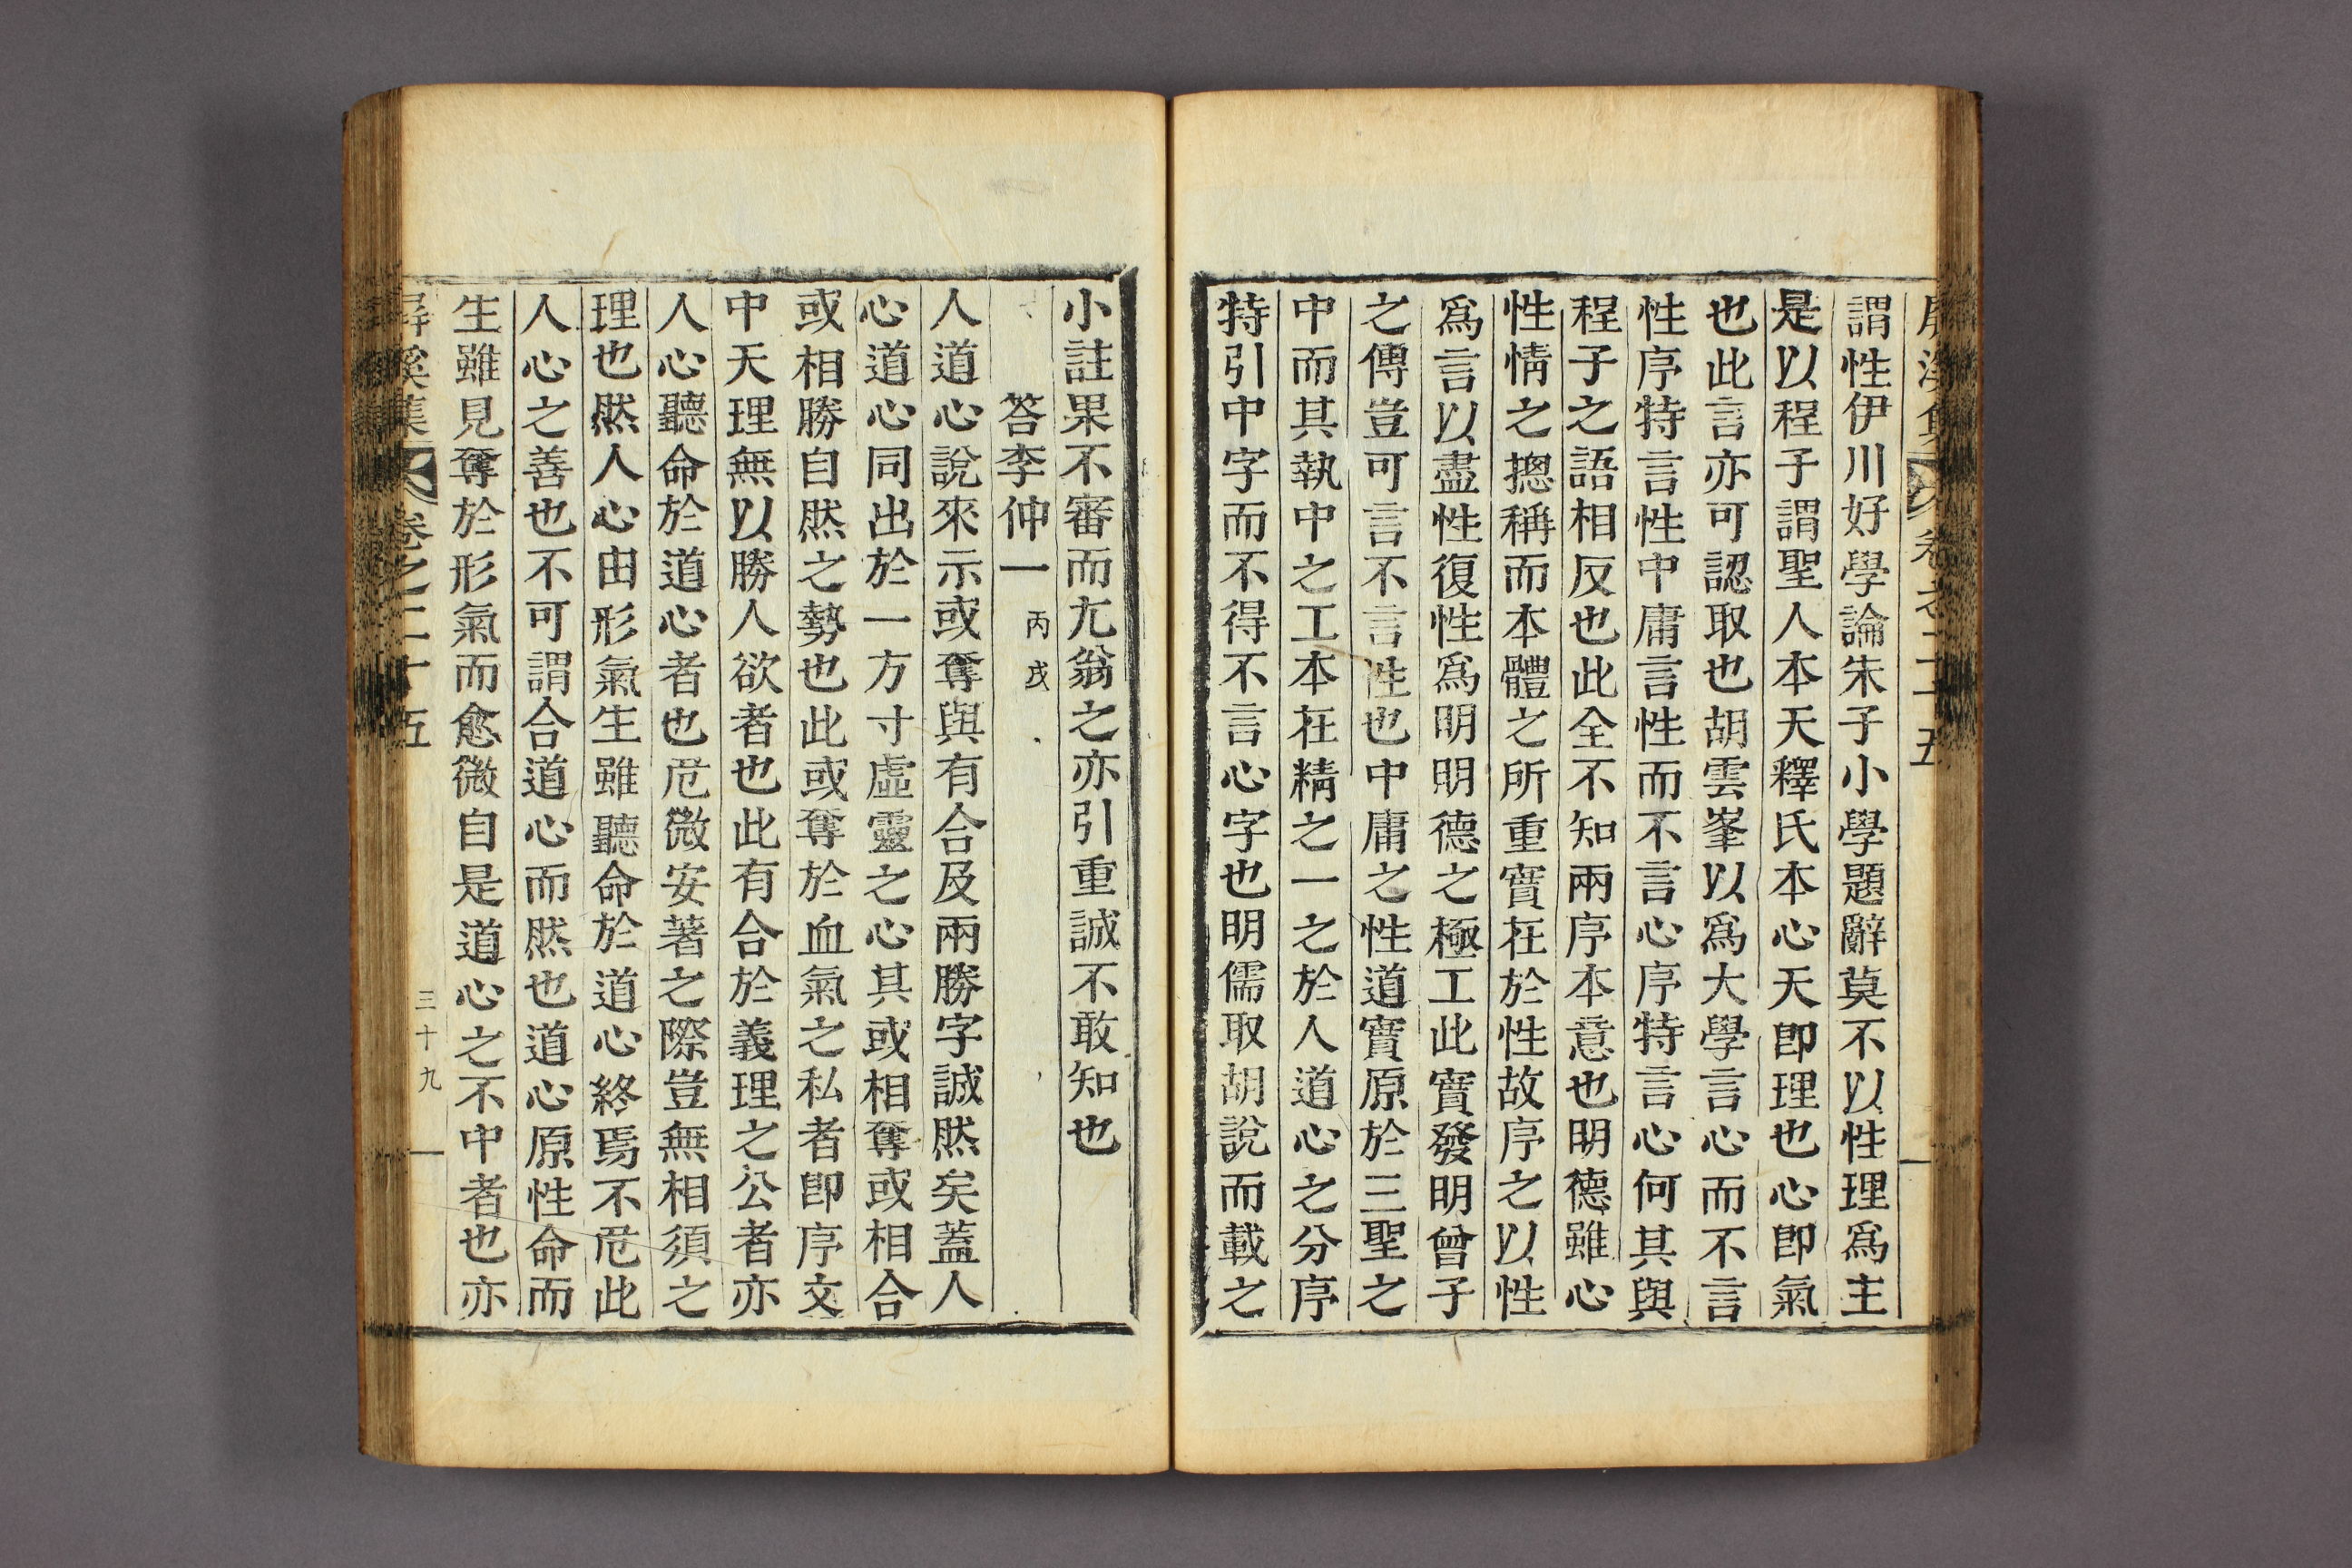 屛溪集 卷之二十五
謂性伊川好學論朱子小學題辭莫不以性理爲主
是以程子謂聖人本天釋氏本心天卽理也心卽氣
也此言亦可認取也胡雲峯以爲大學言心而不言
性序特言性中庸言性而不言心序特言心何其與
程子之語相反也此全不知兩序本意也明德雖心
性情之摠稱而本體之所重實在於性故序之以性
爲言以盡性復性爲明明德之極工此實發明曾子
之傳豈可言不言性也中庸之性道實原於三聖之
中而其執中之工本在精之一之於人道心之分序
特引中字而不得不言心字也明儒取胡說而載之
小註果不審而尤翁之亦引重誠不敢知也
答李仲一 丙戌
人道心說來示或奪與有合及兩勝字誠然矣蓋人
心道心同出於一方寸虛靈之心其或相奪或相合
或相勝自然之勢也此或奪於血氣之私者卽序文
中天理無以勝人欲者也此有合於義理之公者亦
人心聽命於道心者也危微安著之際豈無相須之
理也然人心由形氣生雖聽命於道心終焉不危此
人心之善也不可謂合道心而然也道心原性命而
生雖見奪於形氣而愈微自是道心之不中者也亦
屛溪集 卷之二十五 三十九